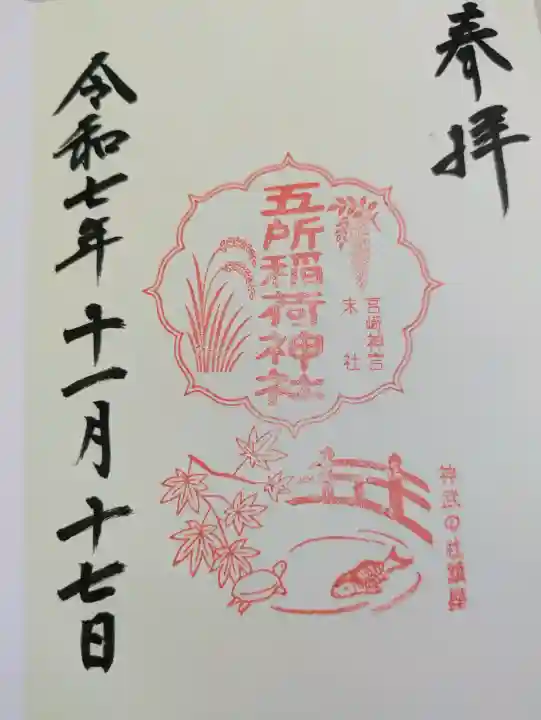 奉拝
宮崎神宮
末社
五所稲荷神社
神武の社鎮座
令和七年十一月十七日